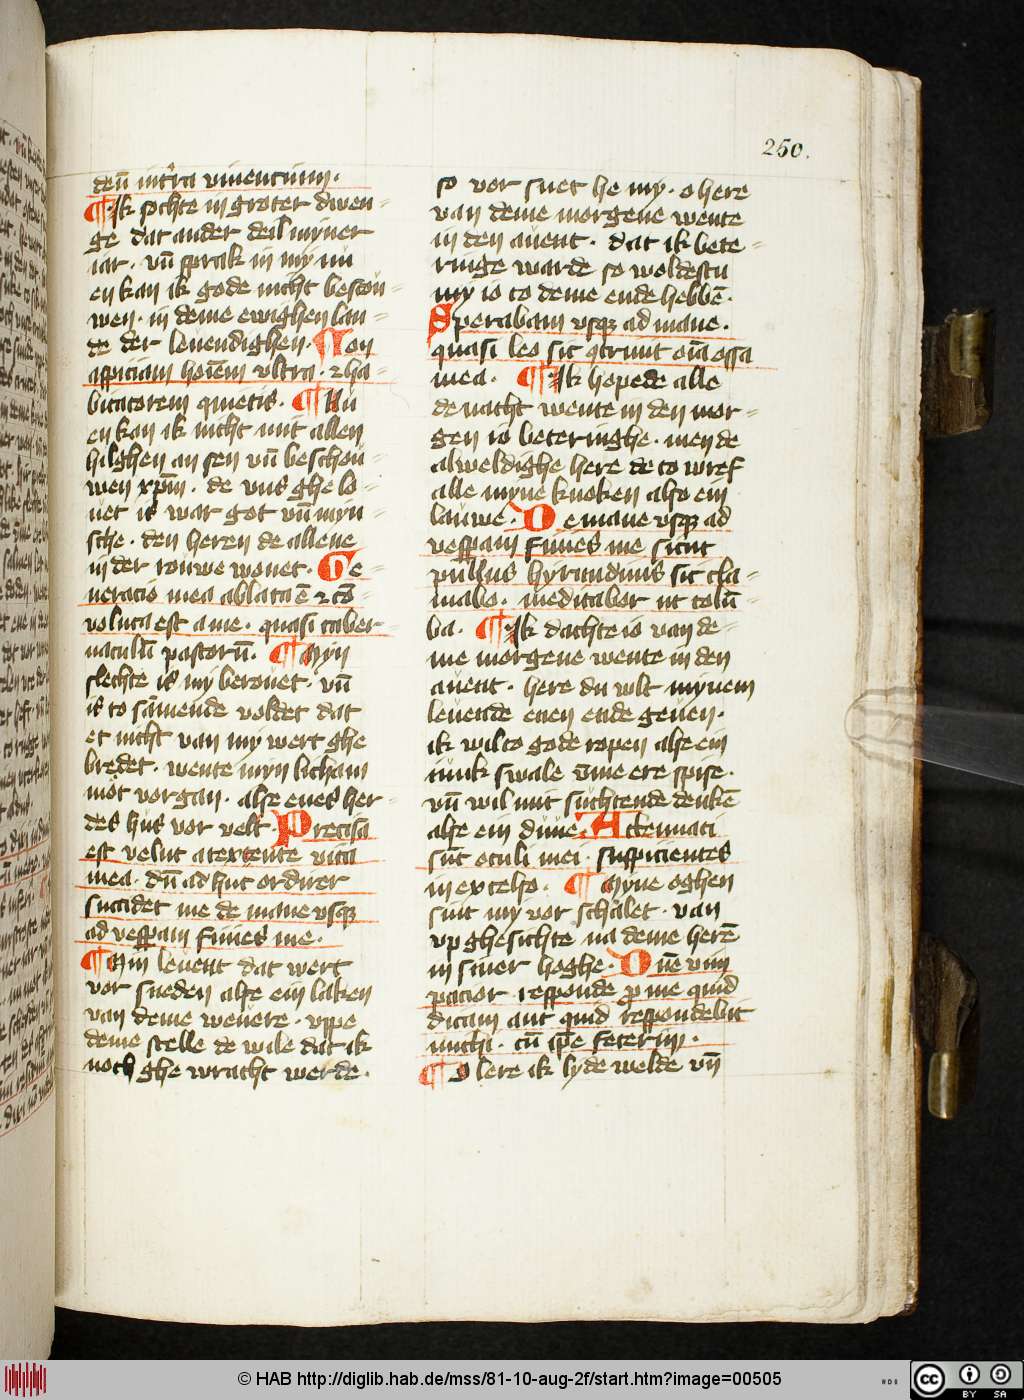 250.
den̄ in tr̄a viuencium.
¶ Ik sochte in groter dwen-
ge dat ander deil myner
iar. vn̄ sprak in my nu
en kan ik gode nicht bescou-
wen. in deme ewighen lan-
de der leuendighen. Non
aspiciam hoīem vltra. ⁊ ha-
bitatorem quietis. ¶ Nu
en kan ik nicht mit allen
hilghen an sen vn̄ beschou-
wen xp̄m. de vns ghe lo-
uet is war got vn̄ myn-
sche. den heren de allene
in der rouwe wonet. Ge-
neracio mea ablata ē ⁊ cō-
voluta est a me. quasi taber-
naculū pastorū. ¶ Myn
slechte is my berouet. vn̄
is to sāmende voldet dat
et nicht van my wert ghe
bredet. wente myn licham
mot vorgan. alse enes her-
des hus vor velt. Precisa
est velut a texente vita
mea. dū ad huc ordirer
succidet me de mane vsqʒ
ad vesp̄am finies me.
¶ Min leuent dat wert
vor sneden alse ein laken
van deme weuere. vppe
deme stelle de wile dat ik
noch ghe wracht werde.
so vor snet he my. o here
van deme morgene wente
in den auent. dat ik bete-
ringe warde so woldestu
my io to deme ende hebbē.
Sperabam vsqʒ ad mane.
quasi leo sic ꝯtriuit oīa ossa
mea. ¶ Ik hopede alle
de nacht wente in den mor-
gen io beteringhe. men de
alweldighe here de to wref
alle myne knoken also ein
lauwe. De mane vsqʒ ad
vesp̄am finies me sicut
pullus hyrundinis sic cla-
mabo. meditabor ut colū-
ba. ¶ Ik dachte io van de-
me morgene wente in den
auent. here du wlt mynem
leuende enen ende geuen.
ik wil to gode ropen alse ein
iunk swale v̄me ere spise.
vn̄ wil mit suchtende denkē
alse ein duue. Attenuati
sūt oculi mei. suspicientes
in excelso. ¶ Myne oghen
sint my vor schalet. van
vp ghesichte na deme herē
in siner hoghe. Dn̄e vim
pacior responde p̄ me quid
dicam aut quid respondebit
michi. cū ip̄e fecerim.
¶ O here ik lyde welde vn̄
© HAB http://diglib.hab.de/mss/81-10-aug-2f/start.htm?image=00505
cc
BY SA